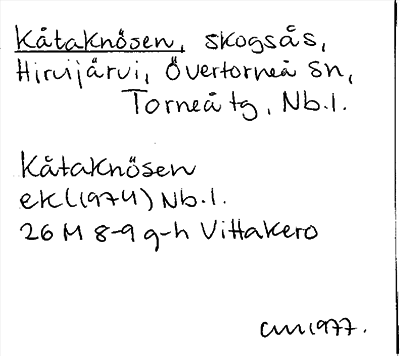 Kåtaknösen, skogsås,
Hirvijärvi, Övertorneå sn,
Torneå tg, Nb.l.
Kåtaknösen
ekl(1974) Nb.l.
26 M 8-9 g-h Vittakero
CM 1977.